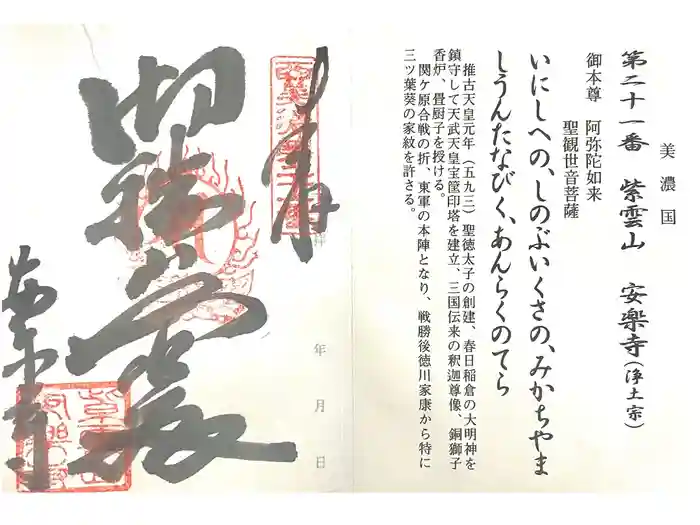 美濃国
第二十一番 紫雲山 安楽寺(浄土宗)
御本尊 阿弥陀如来
聖観世音菩薩
いにしへの、しのぶいくさの、みかちやま
しうんたなびく、あんらくのてら
推古天皇元年(五九三)聖徳太子の創建、春日稲倉の大明神を
鎮守して天武天皇宝筐印塔を建立、三国伝来の釈迦尊像、銅獅子
香炉、畳厨子を授ける。
関ケ原合戦の折、東軍の本陣となり、戦勝後徳川家康から特に
三ツ葉葵の家紋を許さる。
奉
拝
年 月 日
安楽寺